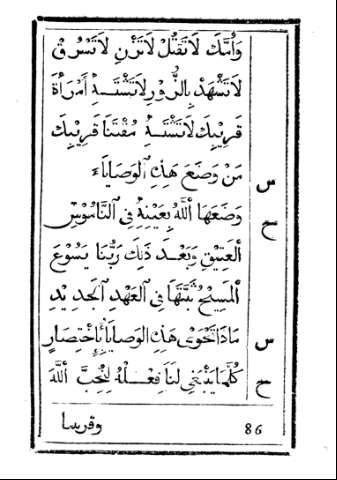 وَأُمَّكَ لَا تَقْتُلْ لَا تَزْنِ لَا تَسْرُقْ
لَا تَشْهَدْ بِالزُّورِ لَا تَشْتَهِ أَمْرَأَةَ
قَرِيبِكَ لَا تَشْتَهِ مُقْتَنَا قَرِيبِكَ
س مَنْ وَضَعَ هَذِهِ الوَصَايَاء
ح وَضَعَهَا اللّٰهُ بِعَيْنِهِ فِي النَّامُوسِ
العَتِيقِ وَبَعْدَ ذَلِكَ رَبُّنَا يَسُوعَ
المَسِيحُ ثَبَّتَهَا فِي العَهْدِ الجَدِيدِ
س مَاذَا تَحْوِى هَذِهِ الوَصَايَا بِاِخْتِصَارٍ
ح كُلَّمَا يَنْبَغِي لَنَا فِعْلُهُ لِنُحِبَّ اللّٰهَ
86 وقريبنا